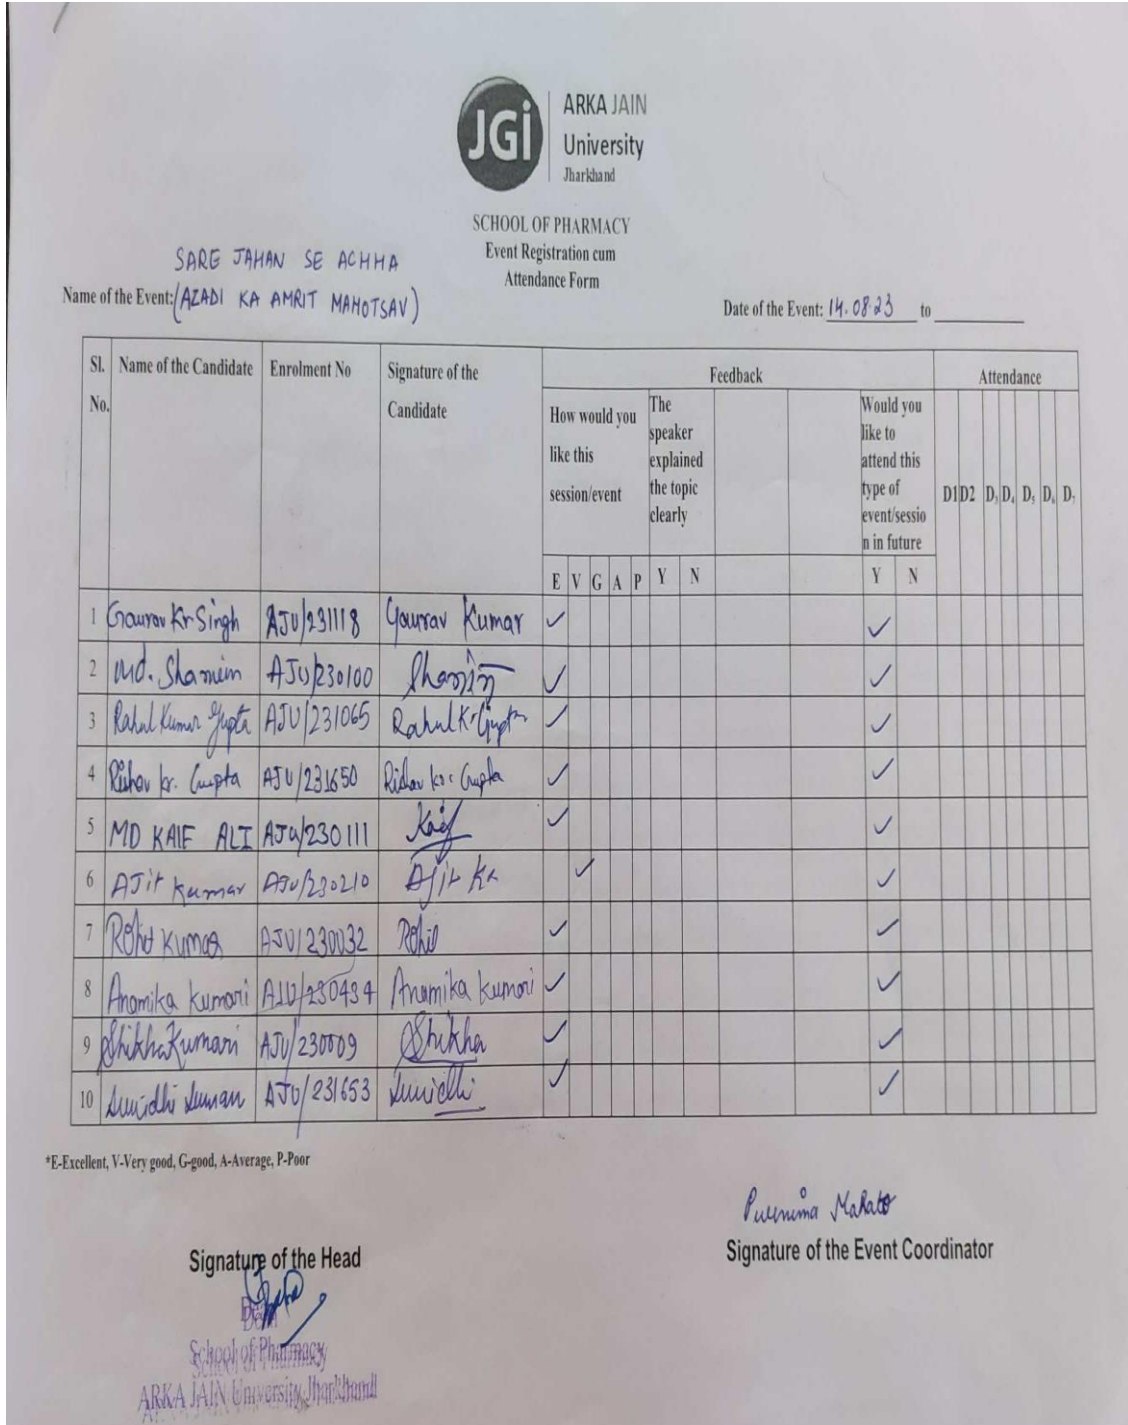 JGi
ARKA JAIN
University
Jharkhand
SCHOOL OF PHARMACY
Event Registration cum
Attendance Form
SARE JAHAN SE ACHHA
Name of the Event: (AZADI KA AMRIT MAHOTSAV)
Date of the Event: 14.08.23 to
Sl. No. Name of the Candidate Enrolment No Signature of the Candidate Feedback Attendance
How would you like this session/event
The speaker explained the topic clearly
Would you like to attend this type of event/session in future
D1 D2 D3 D4 D5 D6 D7
E V G A P Y N Y N
1 Gourav Kr Singh AJU/231118 Gourav Kumar ✓ ✓
2 Md. Shamim AJU/230100 Shamim ✓ ✓
3 Rahul Kumar Gupta AJU/231065 Rahul Kr Gupta ✓ ✓
4 Rishav kr. Gupta AJU/231650 Rishav kr. Gupta ✓ ✓
5 MD KAIF ALI AJU/230111 Kaif ✓ ✓
6 AJit Kumar AJU/230210 AJit Kr ✓ ✓
7 Rohit Kumar AJU/230032 Rohit ✓ ✓
8 Anamika Kumari AJU/230434 Anamika Kumari ✓ ✓
9 Shikha Kumari AJU/230009 Shikha ✓ ✓
10 Sunidhi Suman AJU/231653 Sunidhi ✓ ✓
*E-Excellent, V-Very good, G-good, A-Average, P-Poor
Purnima Mahato
Signature of the Head
Signature of the Event Coordinator
Dean
School of Pharmacy
ARKA JAIN University Jharkhand